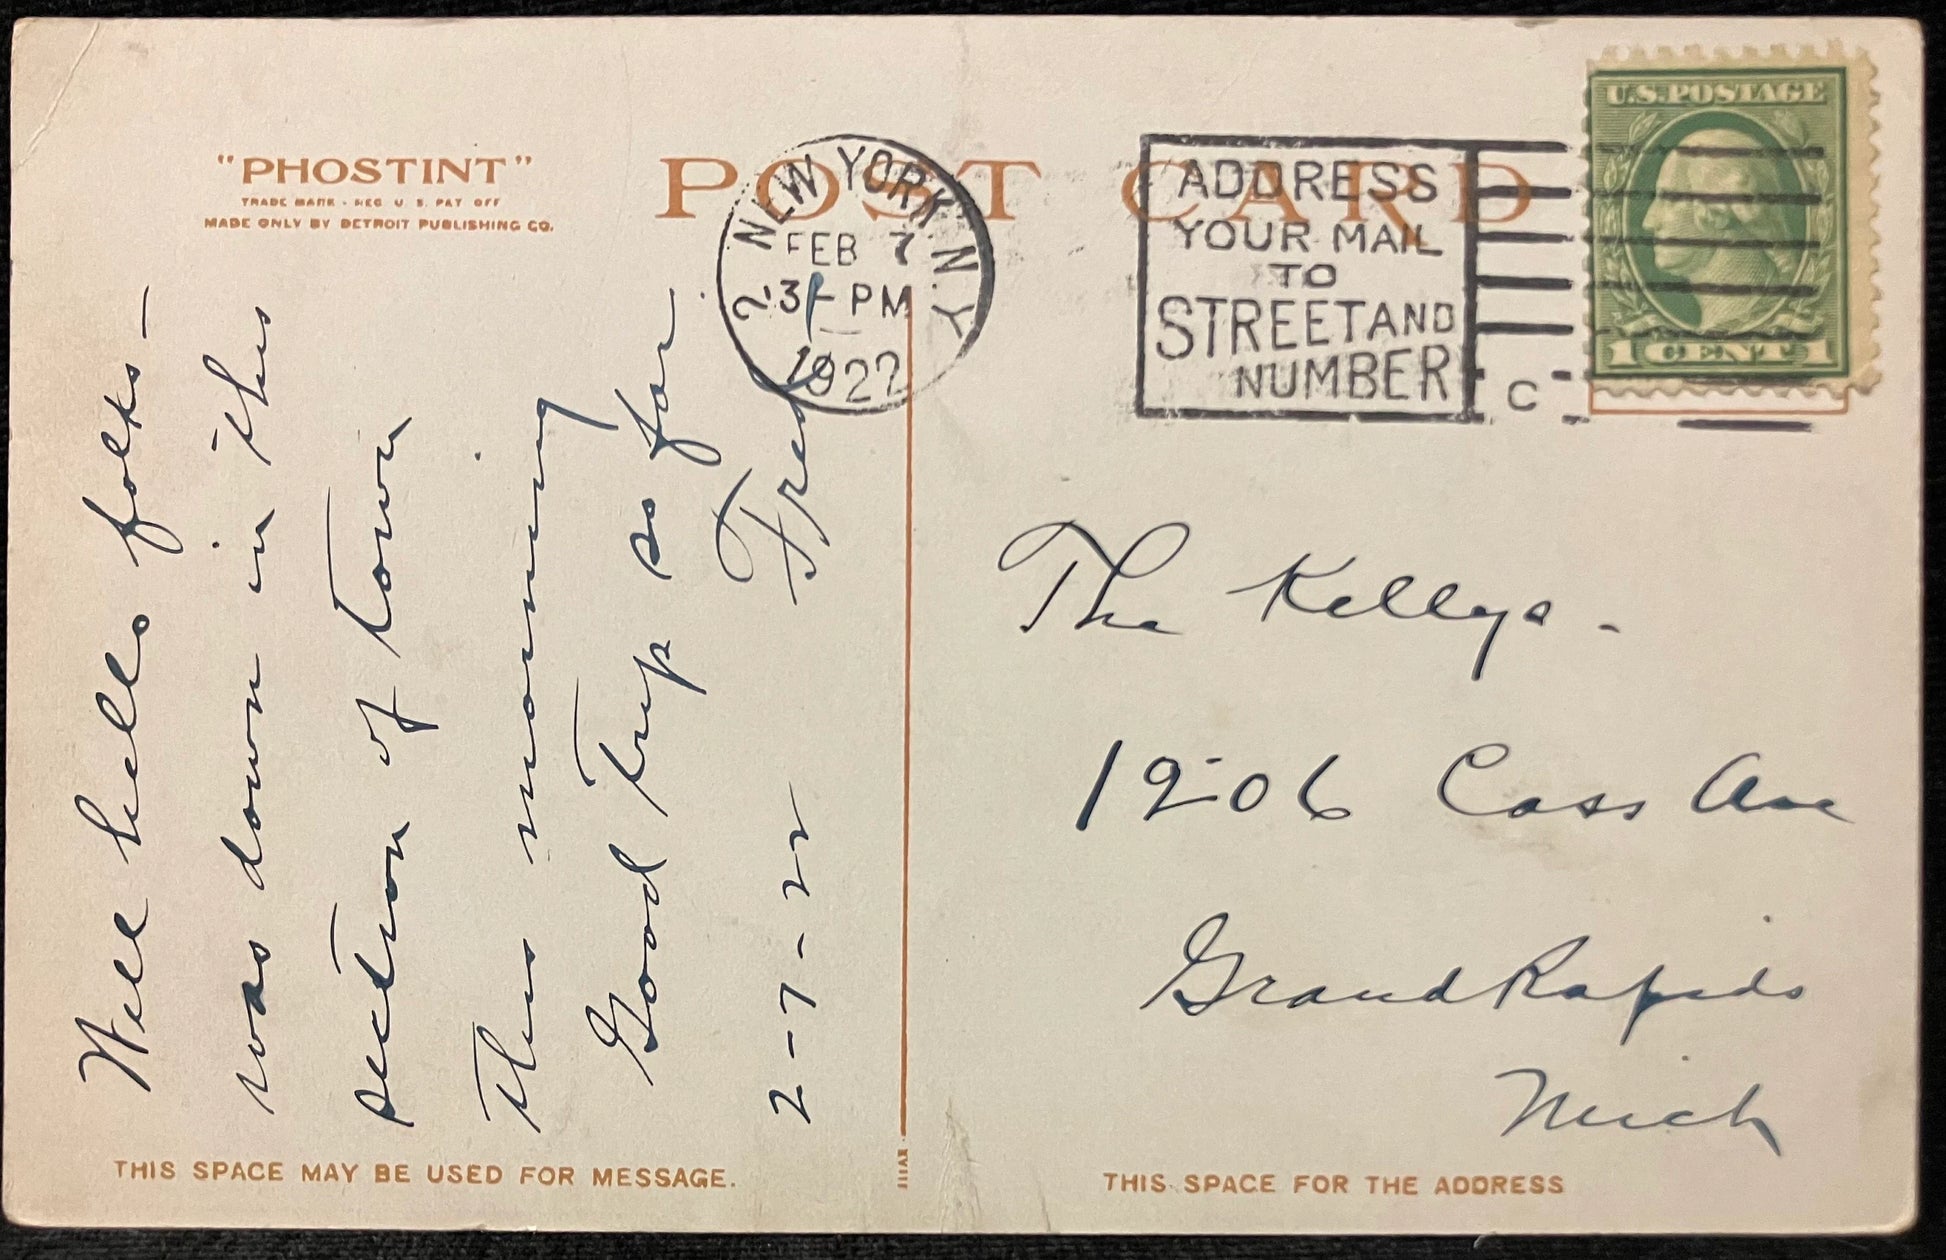 "PHOSTINT"
TRADE MARK - REG U. S. PAT OFF
MADE ONLY BY DETROIT PUBLISHING CO.
POST CARD
NEW YORK, N.Y. 2
FEB 7
3 - PM
1922
ADDRESS
YOUR MAIL
TO
STREET AND
NUMBER
C
U.S. POSTAGE
1 CENT 1
Well hello folks -
was down in this
section of town
this morning
Good trip so far
Fred
2-7-22
THIS SPACE MAY BE USED FOR MESSAGE.
The Kellys.
1206 Cass Ave
Grand Rapids
Mich
THIS SPACE FOR THE ADDRESS